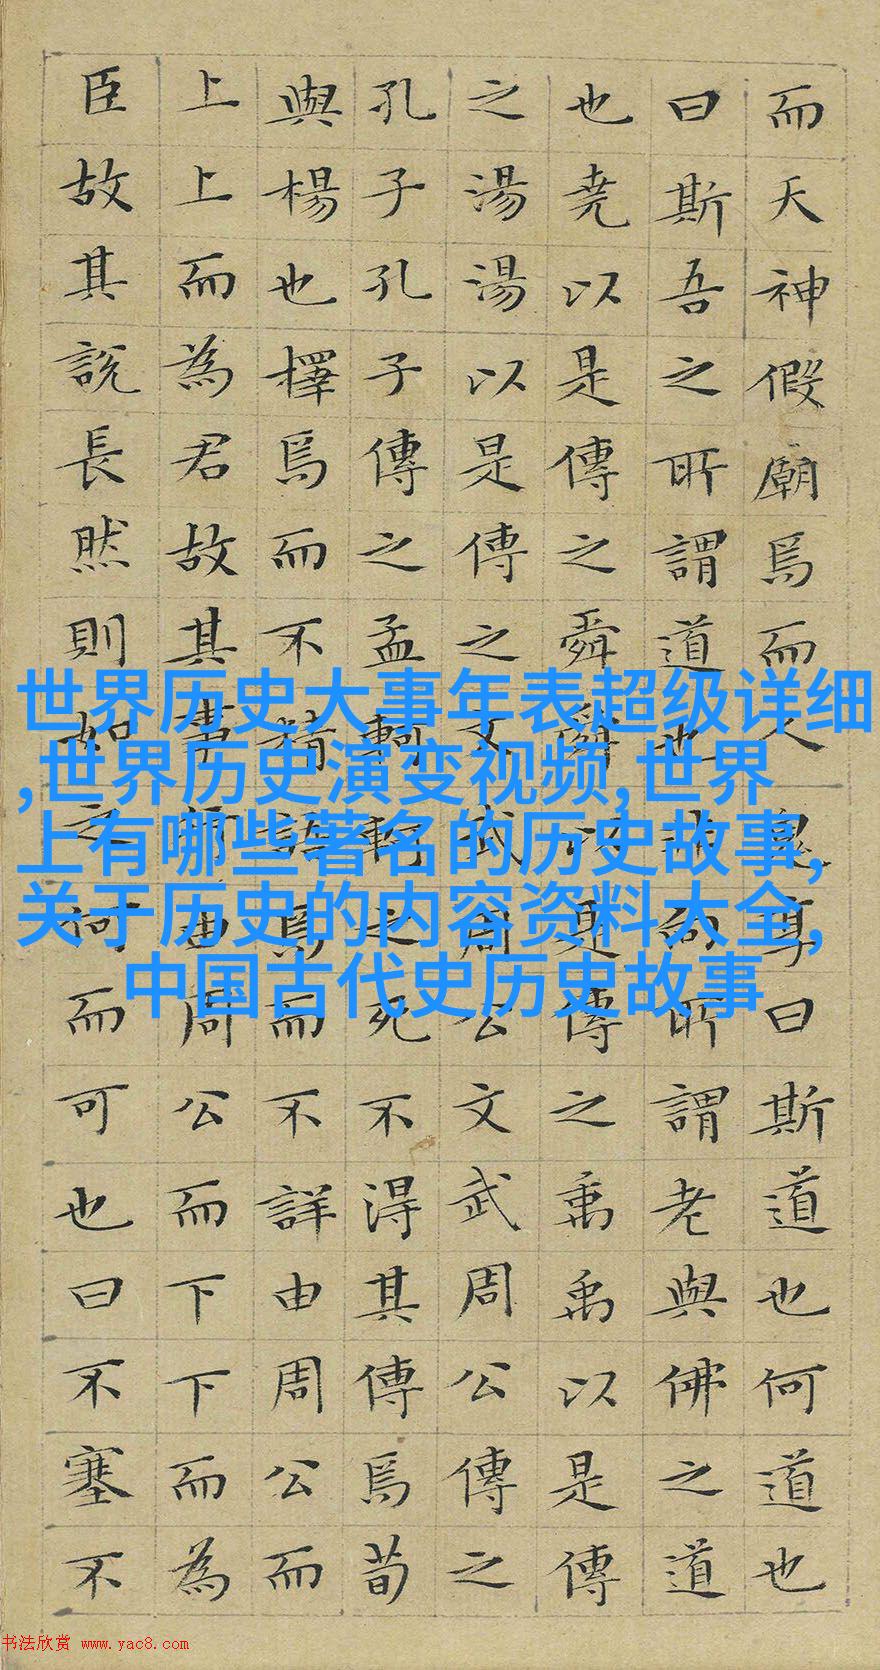 而天神假廟焉而人鬼享曰斯道也何道也
曰斯吾之所謂道也非向所謂老與佛之道
也堯以是傳之舜舜以是傳之禹禹以是傳
之湯湯以是傳之文武周公文武周公傳之
孔子孔子傳之孟軻軻之死不得其傳焉荀
與楊也擇焉而不精語焉而不詳由周公而
上上而為君故其事行由周公而下下而為
臣故其說長然則如之何而可也曰不塞不
世界历史大事年表超级详细
,世界历史演变视频,世界
上有哪些著名的历史故事,
关于历史的内容资料大全,
中国古代史历史故事
书法欣赏 www.yac8.com